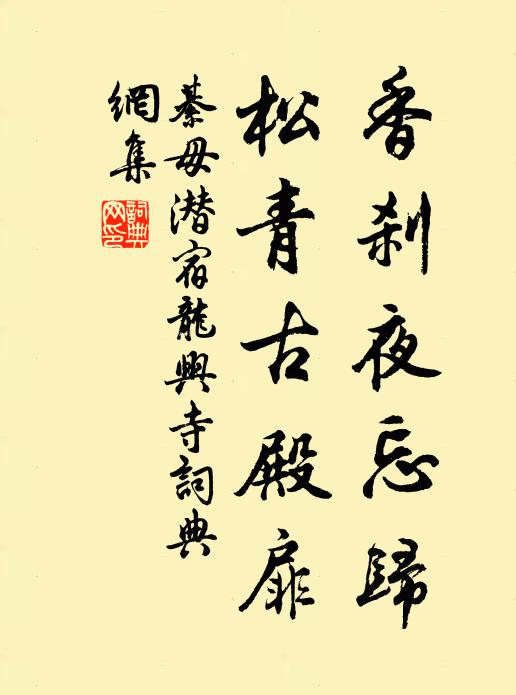 香刹夜忘歸
松青古殿扉
綦毋潜宿龍興寺詞典
網集
詞典
网印